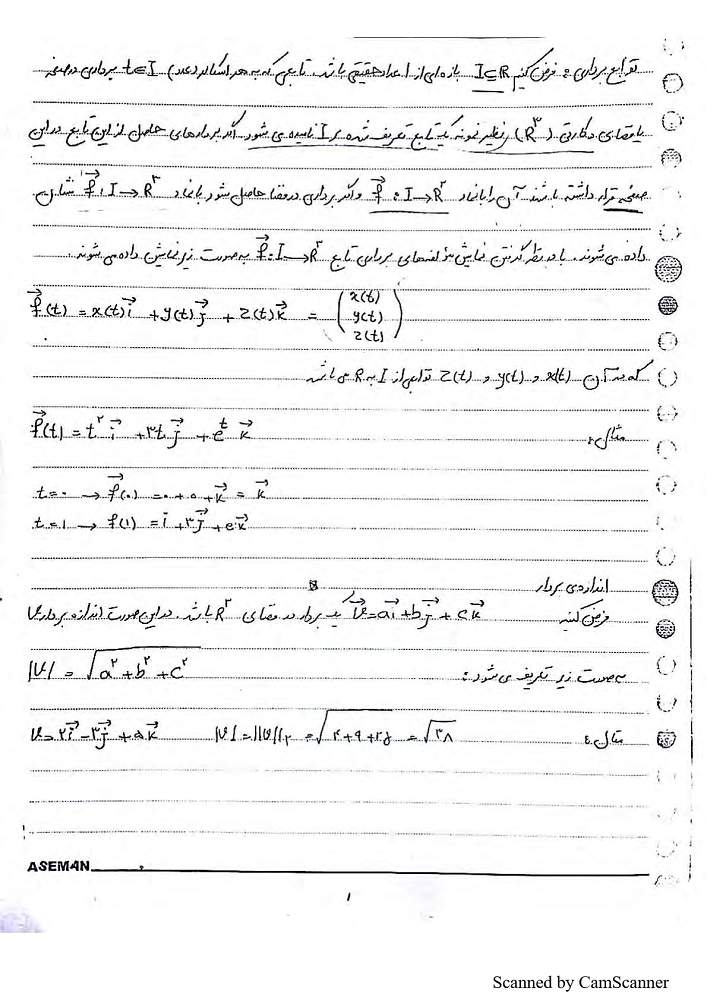 توابع برداری: فرض کنیم I⊆R بازه‌ای از اعداد حقیقی باشد. تابعی که به هر اسکالر (عدد) t∈I برداری در صفحه
یا فضای دکارتی (R³) نظیر نمونه یک تابع تعریف شده بر I نامیده می شود اگر بردارهای حاصل از این تابع در این
صفحه قرار داشته باشند آن را با نماد f⃗: I→R² و اگر برداری در فضا حاصل شود با نماد f⃗: I→R³ نشان
داده می شوند. با در نظر گرفتن نمایش مؤلفه‌های برداری تابع f⃗: I→R³ به صورت زیر نمایش داده می شوند.
f⃗(t) = x(t)i⃗ + y(t)j⃗ + z(t)k⃗ = (x(t) y(t) z(t))
که در آن x(t) و y(t) و z(t) توابعی از I به R می باشد
مثال: f⃗(t) = t²i⃗ + ۳t j⃗ + eᵗ k⃗
t=۰ → f⃗(۰) = ۰+۰+k⃗ = k⃗
t=۱ → f⃗(۱) = i⃗ + ۳j⃗ + ek⃗
اندازه‌ی بردار
فرض کنید V⃗ = ai⃗ + bj⃗ + ck⃗ یک بردار در فضای R³ باشد. در این صورت اندازه بردار V
به صورت زیر تعریف می شود: |V| = √(a² + b² + c²)
مثال: V = ۲i⃗ − ۳j⃗ + ۵k⃗ |V| = ||V||₂ = √(۴+۹+۲۵) = √۳۸
ASEMAN
۱
Scanned by CamScanner